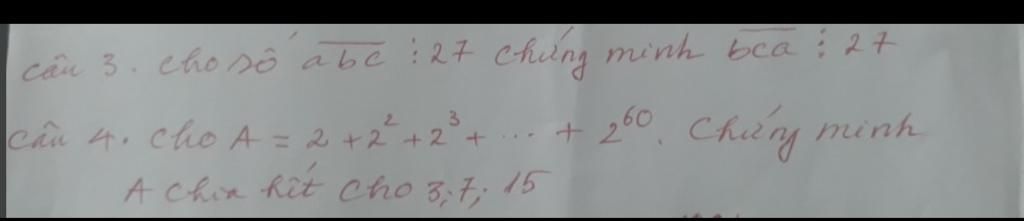 câu 3. cho số \overline{abc} ⋮ 27 chứng minh \overline{bca} ⋮ 27
câu 4. cho A = 2 + 2² + 2³ + ... + 2⁶⁰. Chứng minh
A chia hết cho 3; 7; 15